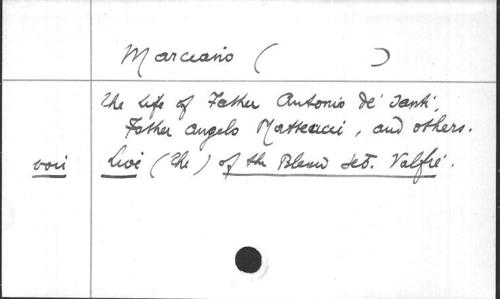 Marciano ( )
The life of Father Antonio de' Santi,
Father Angelo Matteucci, and others.
voir Live (The) of the Blessd Seb. Valfré.